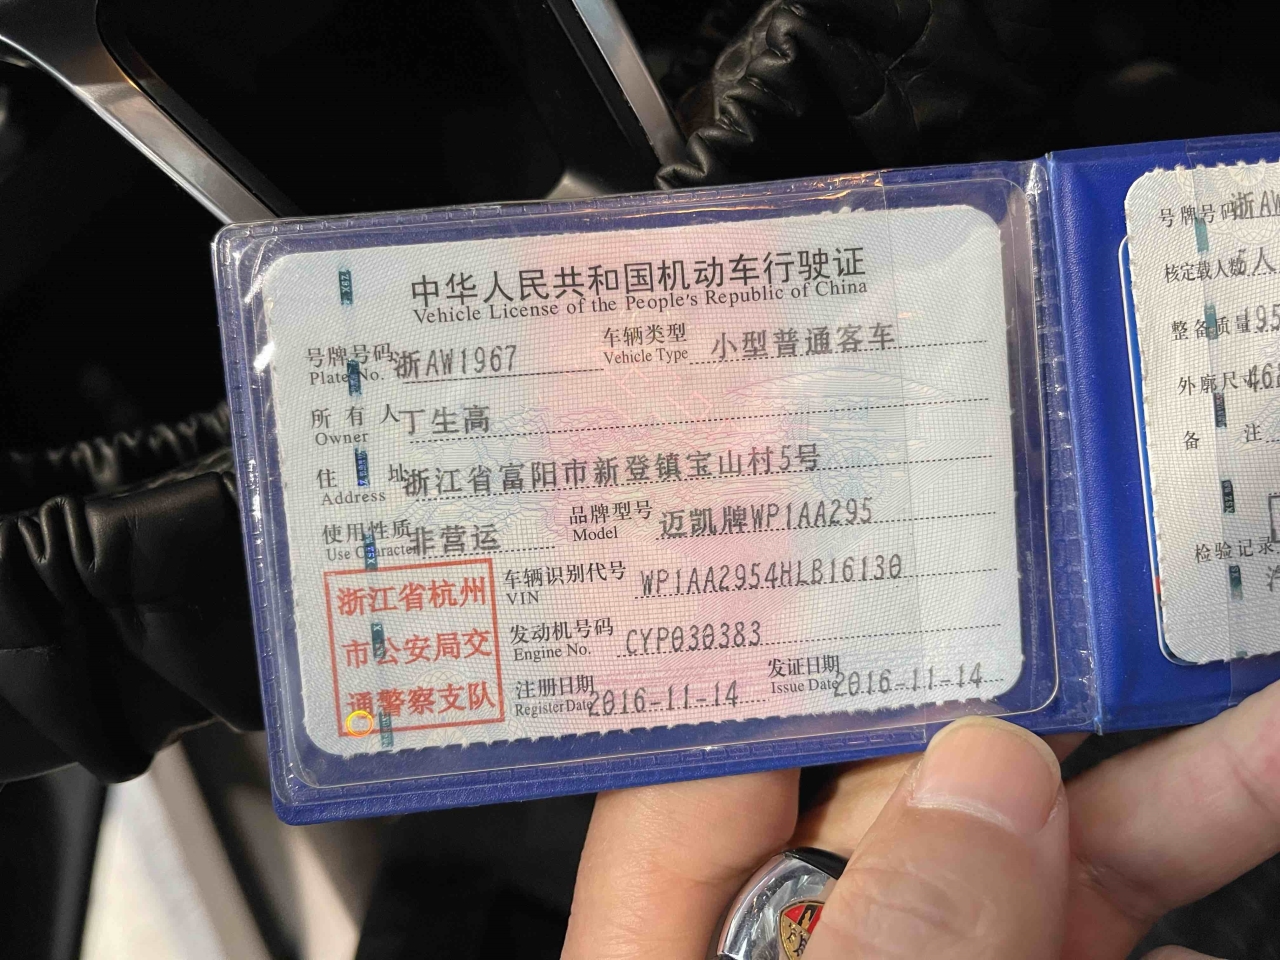 中华人民共和国机动车行驶证
Vehicle License of the People's Republic of China
号牌号码 浙AW1967 车辆类型 小型普通客车
Plate No. Vehicle Type
所有人 丁生高
Owner
住址 浙江省富阳市新登镇宝山村5号
Address
使用性质 非营运 品牌型号 迈凯牌WP1AA295
Use Character Model
车辆识别代号 WP1AA2954HLB16130
VIN
发动机号码 CYP030383
Engine No.
注册日期 2016-11-14 发证日期 2016-11-14
Register Date Issue Date
浙江省杭州
市公安局交
通警察支队
号牌号码 浙AW
核定载人数
整备质量 195
外廓尺寸 46
备注
检验记录